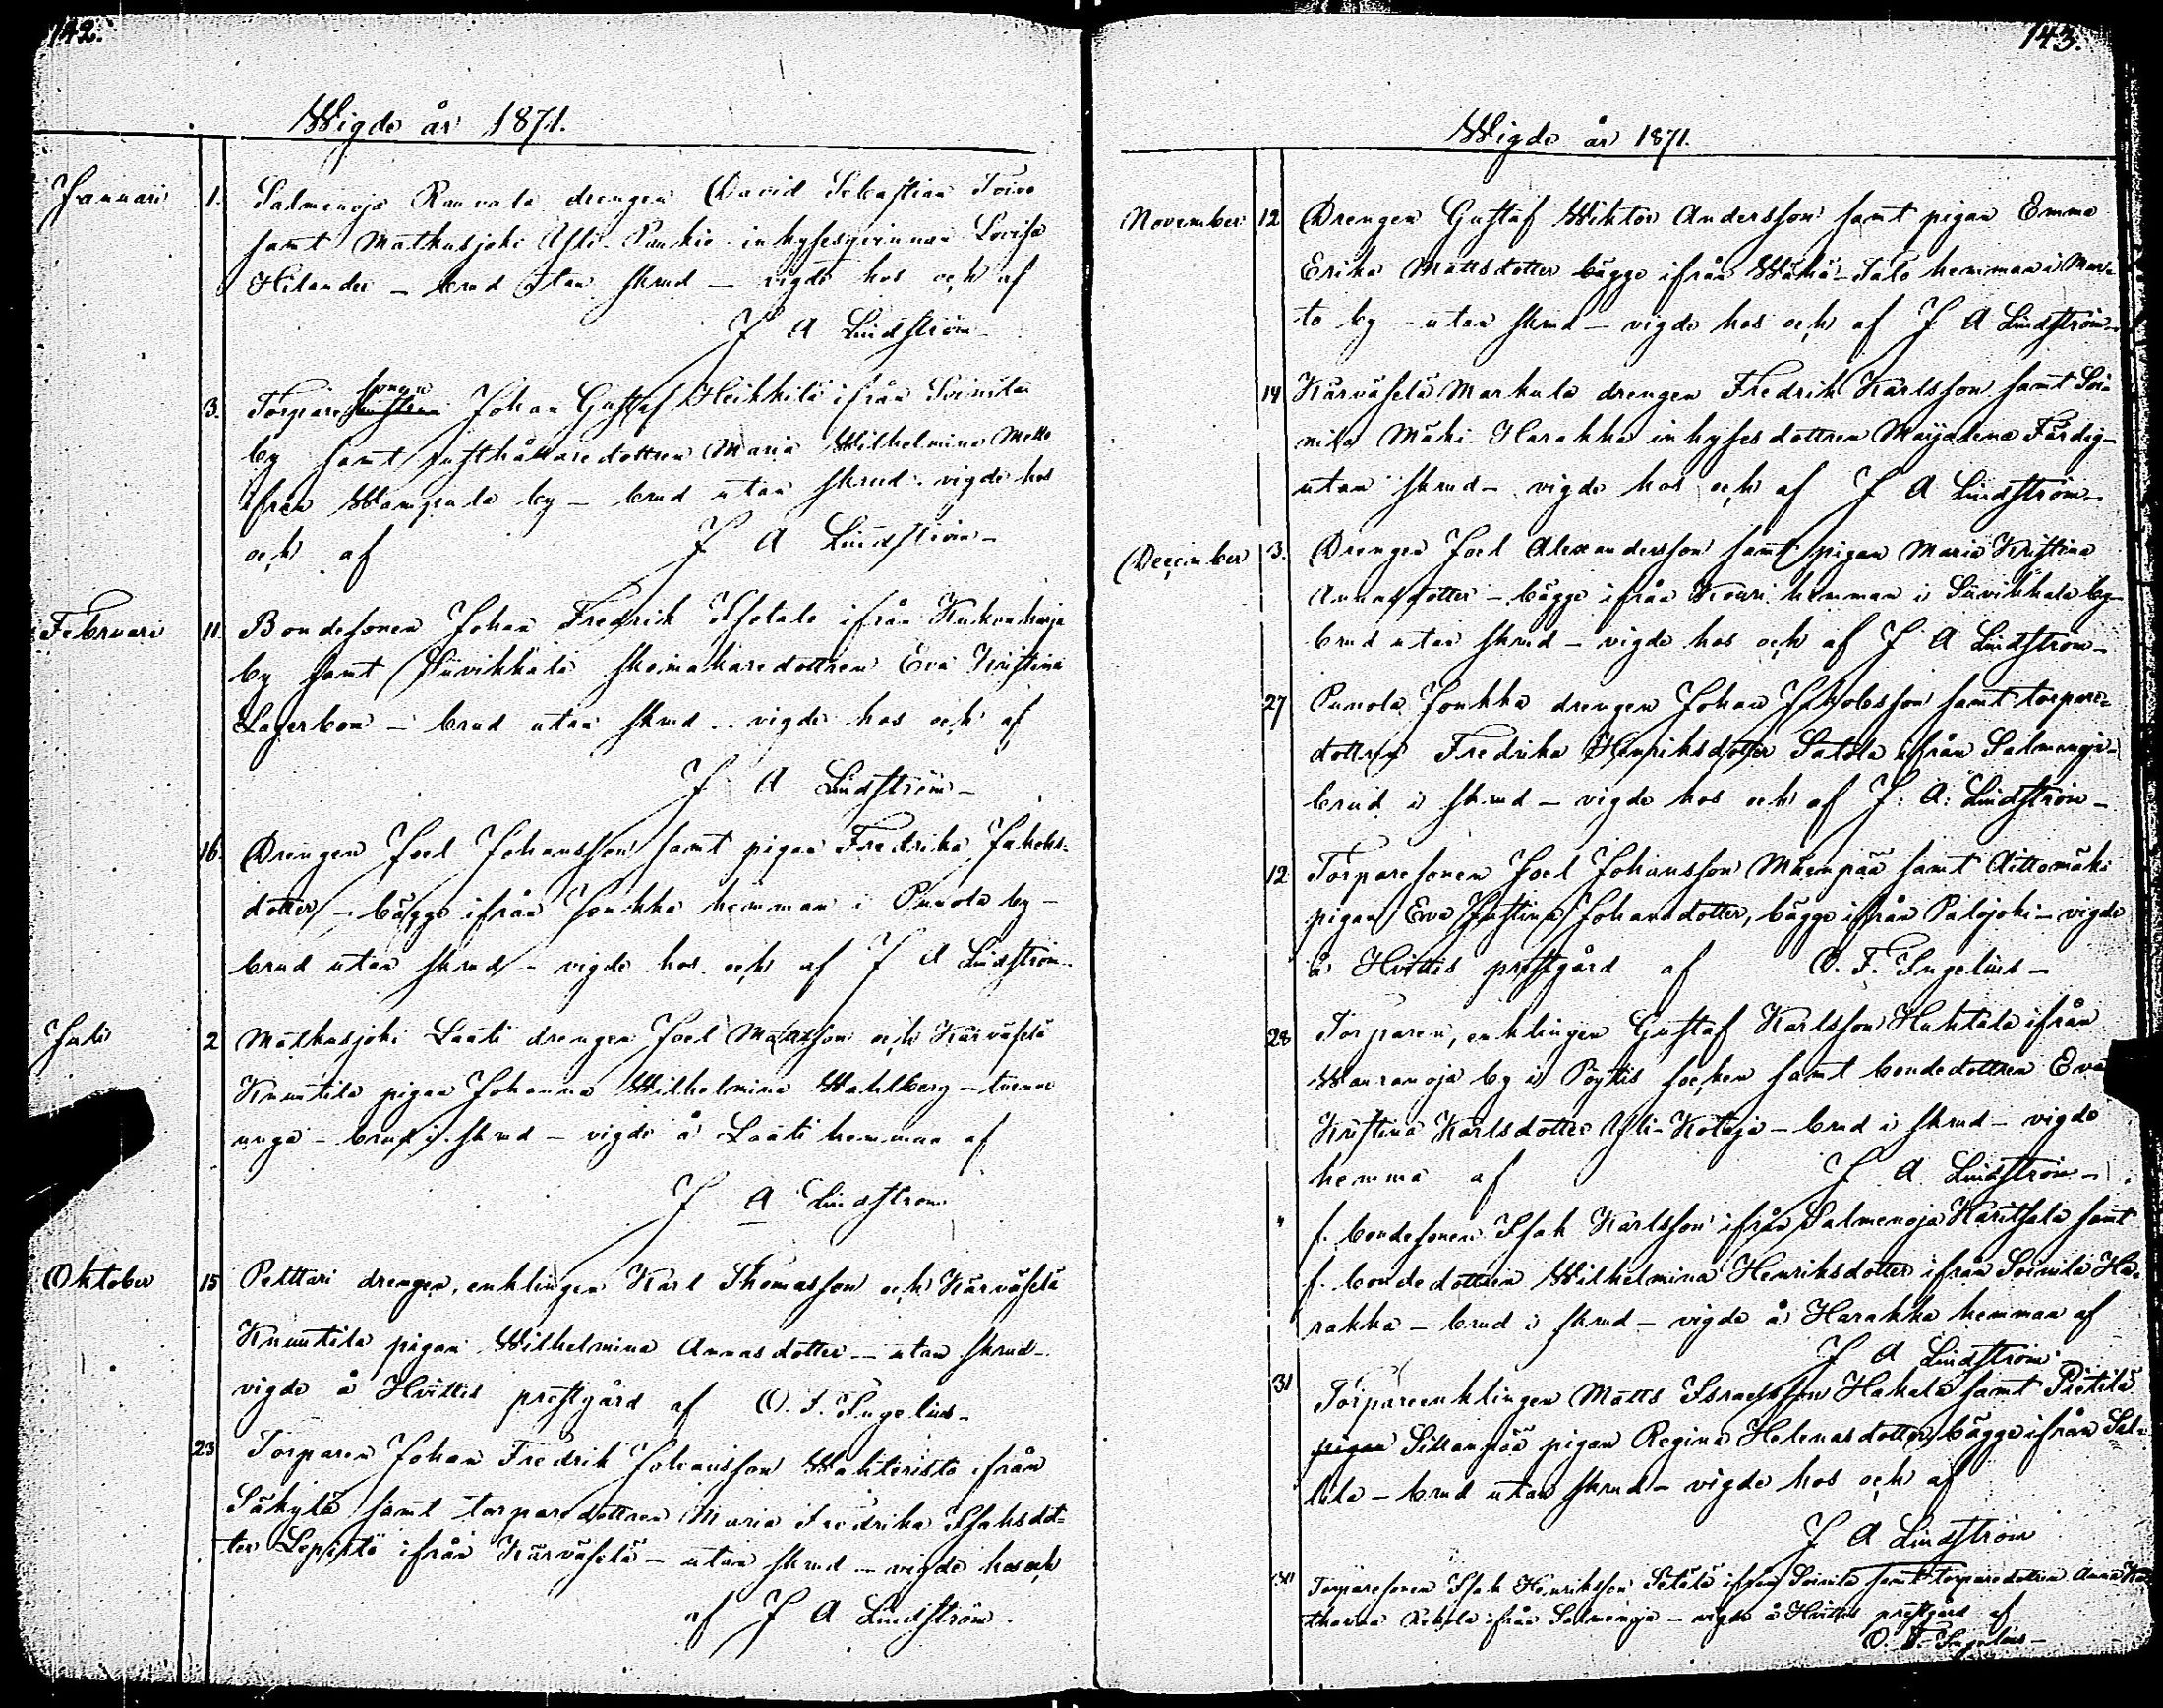 142.
Wigde år 1871.
Januari 1. Salmenoja Rauvala drengen David Sebastian Toivo
samt Matkusjoki Yli-Punkio inhysesqvinnan Lovisa
Hilander – brud utan skrud – vigde hos och af
J A Lindström –
3. Torparesonen Johan Gustaf Heikkilä ifrån Soinila
by samt rusthållaredottren Maria Wilhelmina
ifrån Wampula by – brud utan skrud – vigde hos
och af J A Lindström –
Februari 11 Bondesonen Johan Fredrik Isotalo ifrån Kukonharja
by samt Suvikkala skomakaredottren Eva Kristina
Lagerbom – brud utan skrud – vigde hos och af
J A Lindström –
16. Drengen Joel Johansson samt pigan Fredrika Jakobs-
dotter – bägge ifrån Jonkka hemman i Punola by –
brud utan skrud – vigde hos och af J A Lindström –
Juli 2 Matkusjoki Laati drengen Joel Mattsson och Kärväselä
Knuutila pigan Johanna Wilhelmina Wahlberg – tvenne
unga – brud i skrud – vigde å Laati hemman af
J A Lindström
Oktober 15 Pelttari drengen, enklingen Karl Thomasson och Kärväselä
Knuutila pigan Wilhelmina Annasdotter – utan skrud –
vigde å Hvittis prestgård af O. F. Ingelius –
23 Torparen Johan Fredrik Johansson Wahteristo ifrån
Säkylä samt torparedottren Maria Fredrika Isaksdot-
ter Lepistö ifrån Kärväselä – utan skrud – vigde hos och
af J A Lindström.
143.
Wigde år 1871.
November 12 Drengen Gustaf Wiktor Andersson samt pigan Emma
Erika Mattsdotter bägge ifrån Wähä-Talo hemman i Mart-
to by – utan skrud – vigde hos och af J A Lindström –
14 Kärväselä Markula drengen Fredrik Karlsson samt Soi-
nila Mäki-Harakka inhysesdottren Majadena Färdig –
utan skrud – vigde hos och af J A Lindström –
December 3. Drengen Joel Alexandersson samt pigan Maria Kristina
Annasdotter – bägge ifrån Kouri hemman i Suvikkala by –
brud utan skrud – vigde hos och af J A Lindström –
27 Punola Jonkka drengen Johan Jakobsson samt torpare-
dottren Fredrika Henriksdotter Satola ifrån Salmenoja –
brud i skrud – vigde hos och af J: A: Lindström –
12 Torparesonen Joel Johansson Mäenpää samt Aittomäki
pigan Eva Justina Johansdotter, bägge ifrån Palojoki – vigde
å Hvittis prestgård af O. F. Ingelius –
28 Torparen, enklingen Gustaf Karlsson Huhtala ifrån
Wauranoja by i Pöytis socken samt bondedottren Eva
Kristina Karlsdotter Yli-Kotaja – brud i skrud – vigde
hemma af J A Lindström –
" f. bondesonen Isak Karlsson ifrån Salmenoja Karitsala samt
f. bondedottren Wilhelmina Henriksdotter ifrån Soinila Ha-
rakka – brud i skrud – vigde å Harakka hemman af
J A Lindström
31 Torpareenklingen Matts Israelsson Hakala samt Pietilä
pigan Sillanpää pigan Regina Helenasdotter, bägge ifrån Sal-
lila – brud utan skrud – vigde hos och af
J A Lindström
Torparesonen Isak Henriksson Setälä ifrån Soinila samt torparedottren Anna Ka-
tharina Kekola ifrån Salmenoja – vigde å Hvittis prestgård af
O. F. Ingelius –